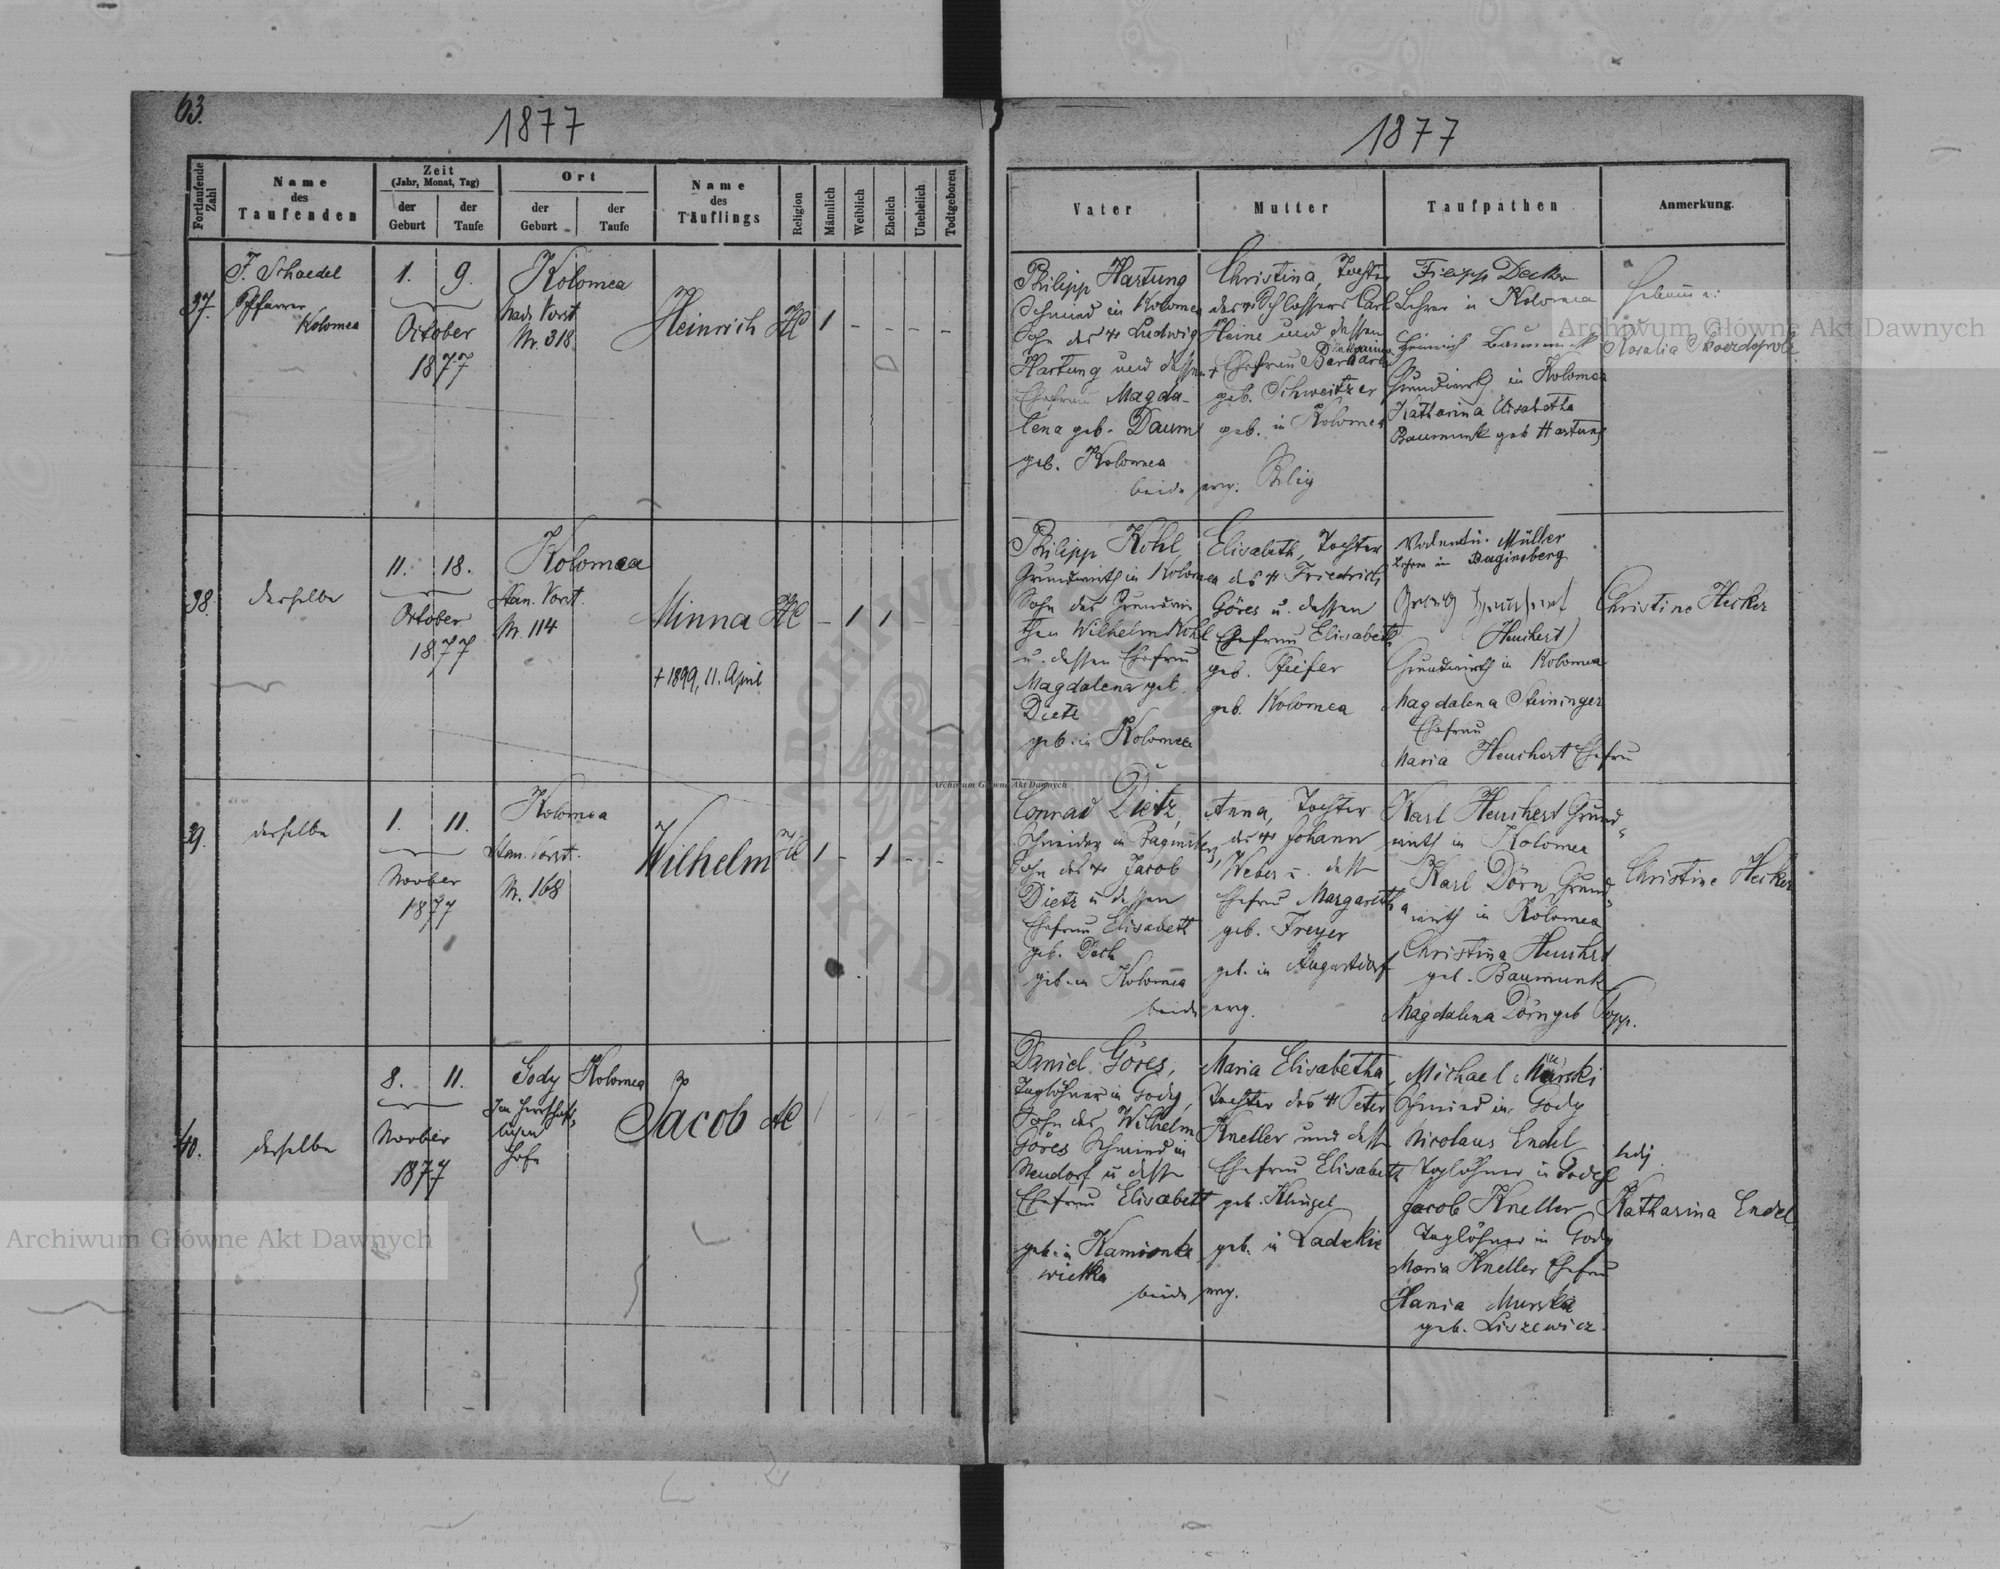 63.
1877
1877
Fortlaufende Zahl
Name des Taufenden
Zeit
(Jahr, Monat, Tag)
der Geburt
der Taufe
Ort
der Geburt
der Taufe
Name des Täuflings
Religion
Männlich
Weiblich
Ehelich
Unehelich
Todtgeboren
Vater
Mutter
Taufpathen
Anmerkung.
37.
J. Schaedel
Pfarrer
Kolomea
1. 9.
October
1877
Kolomea
Nad. Vorst
Nr. 318
Heinrich
HC
1 - - - -
Philipp Hartung
Schmied in Kolomea
Sohn des + Ludwig
Hartung und dessen
Ehefrau Magda-
lena geb. Daum
geb. Kolomea
beide evg. Relig
Christina, Tochter
des + Schlossers Carl
Heine und dessen
+ Ehefrau Barbara
Katharina
geb. Schweitzer
geb. in Kolomea
Decker
Lehrer in Kolomea
Heinrich Baumunk
Grundwirth in Kolomea
Katharina Elisabetha
Baumunk geb Hartung
Rosalia
38.
derselbe
11. 18.
October
1877
Kolomea
Stan. Vorst.
Nr. 114
Minna
HC
- 1 1 - -
+ 1899, 11. April
Philipp Kohl,
Grundwirth in Kolomea
Sohn des Grundwir
then Wilhelm Kohl
u. dessen Ehefrau
Magdalena geb.
Dietz
geb. in Kolomea
Elisabeth, Tochter
des + Friedrich
Göres u. dessen
Ehefrau Elisabeth
geb. Pfeifer
geb. Kolomea
Valentin Müller
Lehrer in Baginsberg
(Heuchert)
Grundwirth in Kolomea
Magdalena Steininger
Ehefrau
Maria Heuchert Ehefrau
Christine Hecker
39.
derselbe
1. 11.
Novber
1877
Kolomea
Stan. Vorst.
Nr. 168
Wilhelm
HC
1 - 1 - -
Conrad Dietz,
Schneider in Baginsberg,
Sohn des + Jacob
Dietz u dessen
Ehefrau Elisabeth
geb. Dech
geb. in Kolomea
beide evg.
Anna, Tochter
des + Johann
Weber u. dess
Ehefrau Margaretha
geb. Freyer
geb. in Augustdorf
Karl Heuchert Grund-
wirth in Kolomea
Karl Dörn Grund-
wirth in Kolomea
Christina Heuchert
geb. Baumunk
Magdalena Dörn geb Popp.
Christine Hecker
40.
derselbe
8. 11.
Novber
1877
Gody Kolomea
Im herrschaft-
lichen
Hofe
Jacob
HC
Daniel Göres,
Taglöhner in Gody,
Sohn des Wilhelm
Göres Schmied in
Neudorf u dessen
Ehefrau Elisabeth
geb. in Kamionka
wielka
beide evg.
Maria Elisabetha
Tochter des + Peter
Kneller und dess
Ehefrau Elisabeth
geb. Klingel
geb. in Ladzkie
Michael Murski
Schmied in Gody
Nicolaus Endel
Taglöhner in Gody
Jacob Kneller
Taglöhner in Gody
Maria Kneller Ehefrau
Hania Murska
geb. Liszewicz.
led.
Katharina Endel
Archiwum Główne Akt Dawnych
Archiwum Główne Akt Dawnych
Archiwum Główne Akt Dawnych
ARCHIWUM GŁÓWNE AKT DAWNYCH